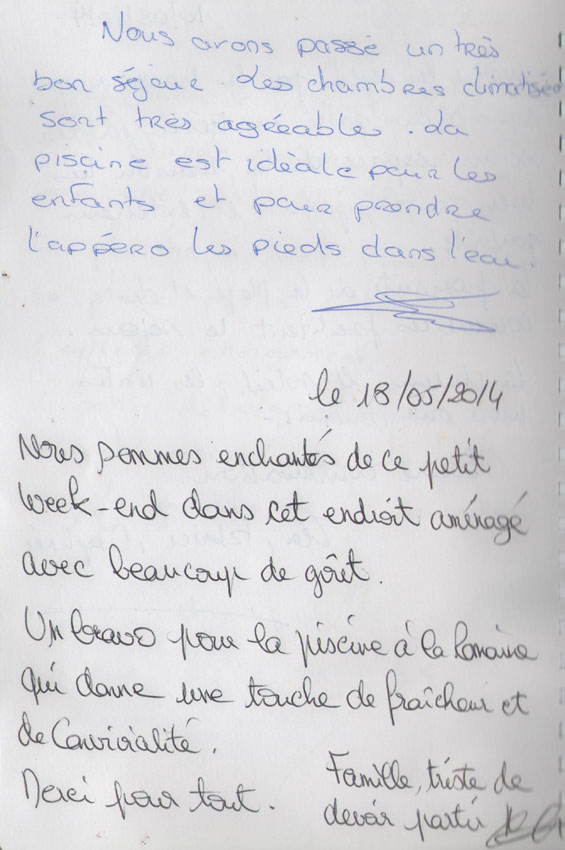 Nous avons passé un très
bon séjour. Les chambres climatisées
sont très agréables. La
piscine est idéale pour les
enfants et pour prendre
l'appéro les pieds dans l'eau.
le 18/05/2014
Nous sommes enchantés de ce petit
week-end dans cet endroit aménagé
avec beaucoup de goût.
Un bravo pour la piscine à la Romaine
qui donne une touche de fraîcheur et
de Convivialité.
Merci pour tout.
Famille, triste de
devoir partir